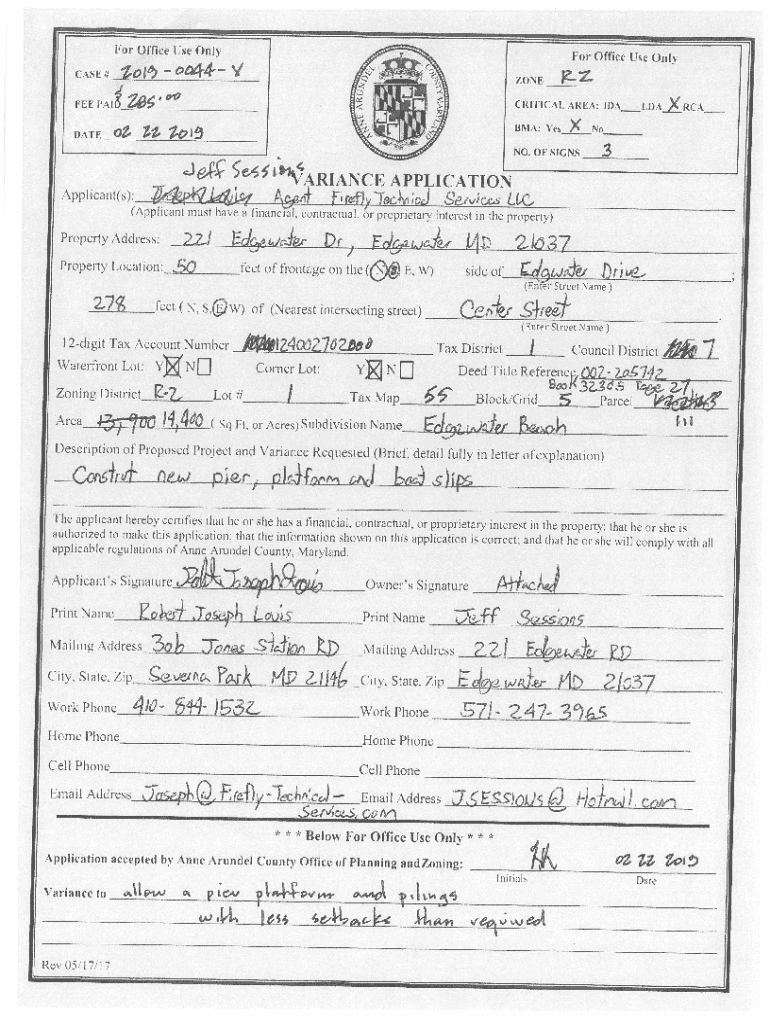 For Office Use Only
CASE # 2019-0044-V
FEE PAID $285.00
DATE 02 22 2019
ANNE ARUNDEL COUNTY MARYLAND
For Office Use Only
ZONE R2
CRITICAL AREA: IDA___ LDA X RCA___
BMA: Yes X No___
NO. OF SIGNS 3
Jeff Sessions
VARIANCE APPLICATION
Applicant(s): Agent Firefly Technical Services LLC
(Applicant must have a financial, contractual, or proprietary interest in the property)
Property Address: 221 Edgewater Dr, Edgewater MD 21037
Property Location: 50 feet of frontage on the (N, E, W) side of Edgwater Drive ;
(Enter Street Name)
278 feet (N, S, E W) of (Nearest intersecting street) Center Street
(Enter Street Name)
12-digit Tax Account Number 124002702000 Tax District 1 Council District 7
Waterfront Lot: Y☒ N☐ Corner Lot: Y☒ N☐ Deed Title Reference 002-205742
Book 32305 Page 27
Zoning District R-2 Lot # 1 Tax Map 55 Block/Grid 5 Parcel
111
Area 13,900 14,400 (Sq Ft. or Acres) Subdivision Name Edgewater Beach
Description of Proposed Project and Variance Requested (Brief, detail fully in letter of explanation)
Construt new pier, platform and boat slips
The applicant hereby certifies that he or she has a financial, contractual, or proprietary interest in the property; that he or she is
authorized to make this application; that the information shown on this application is correct; and that he or she will comply with all
applicable regulations of Anne Arundel County, Maryland.
Applicant's Signature Owner's Signature Attached
Print Name Robert Joseph Louis Print Name Jeff Sessions
Mailing Address 306 Jones Station RD Mailing Address 221 Edgewater RD
City, State, Zip Severna Park MD 21146 City, State, Zip Edgewater MD 21037
Work Phone 410-844-1532 Work Phone 571-247-3965
Home Phone Home Phone
Cell Phone Cell Phone
Email Address Joseph@Firefly-Technical- Email Address J.SESSIONS@Hotmail.com
Services.com
* * * Below For Office Use Only * * *
Application accepted by Anne Arundel County Office of Planning and Zoning: 02 22 2019
Initials Date
Variance to allow a pier platform and pilings
with less setbacks than required
Rev 05/17/17